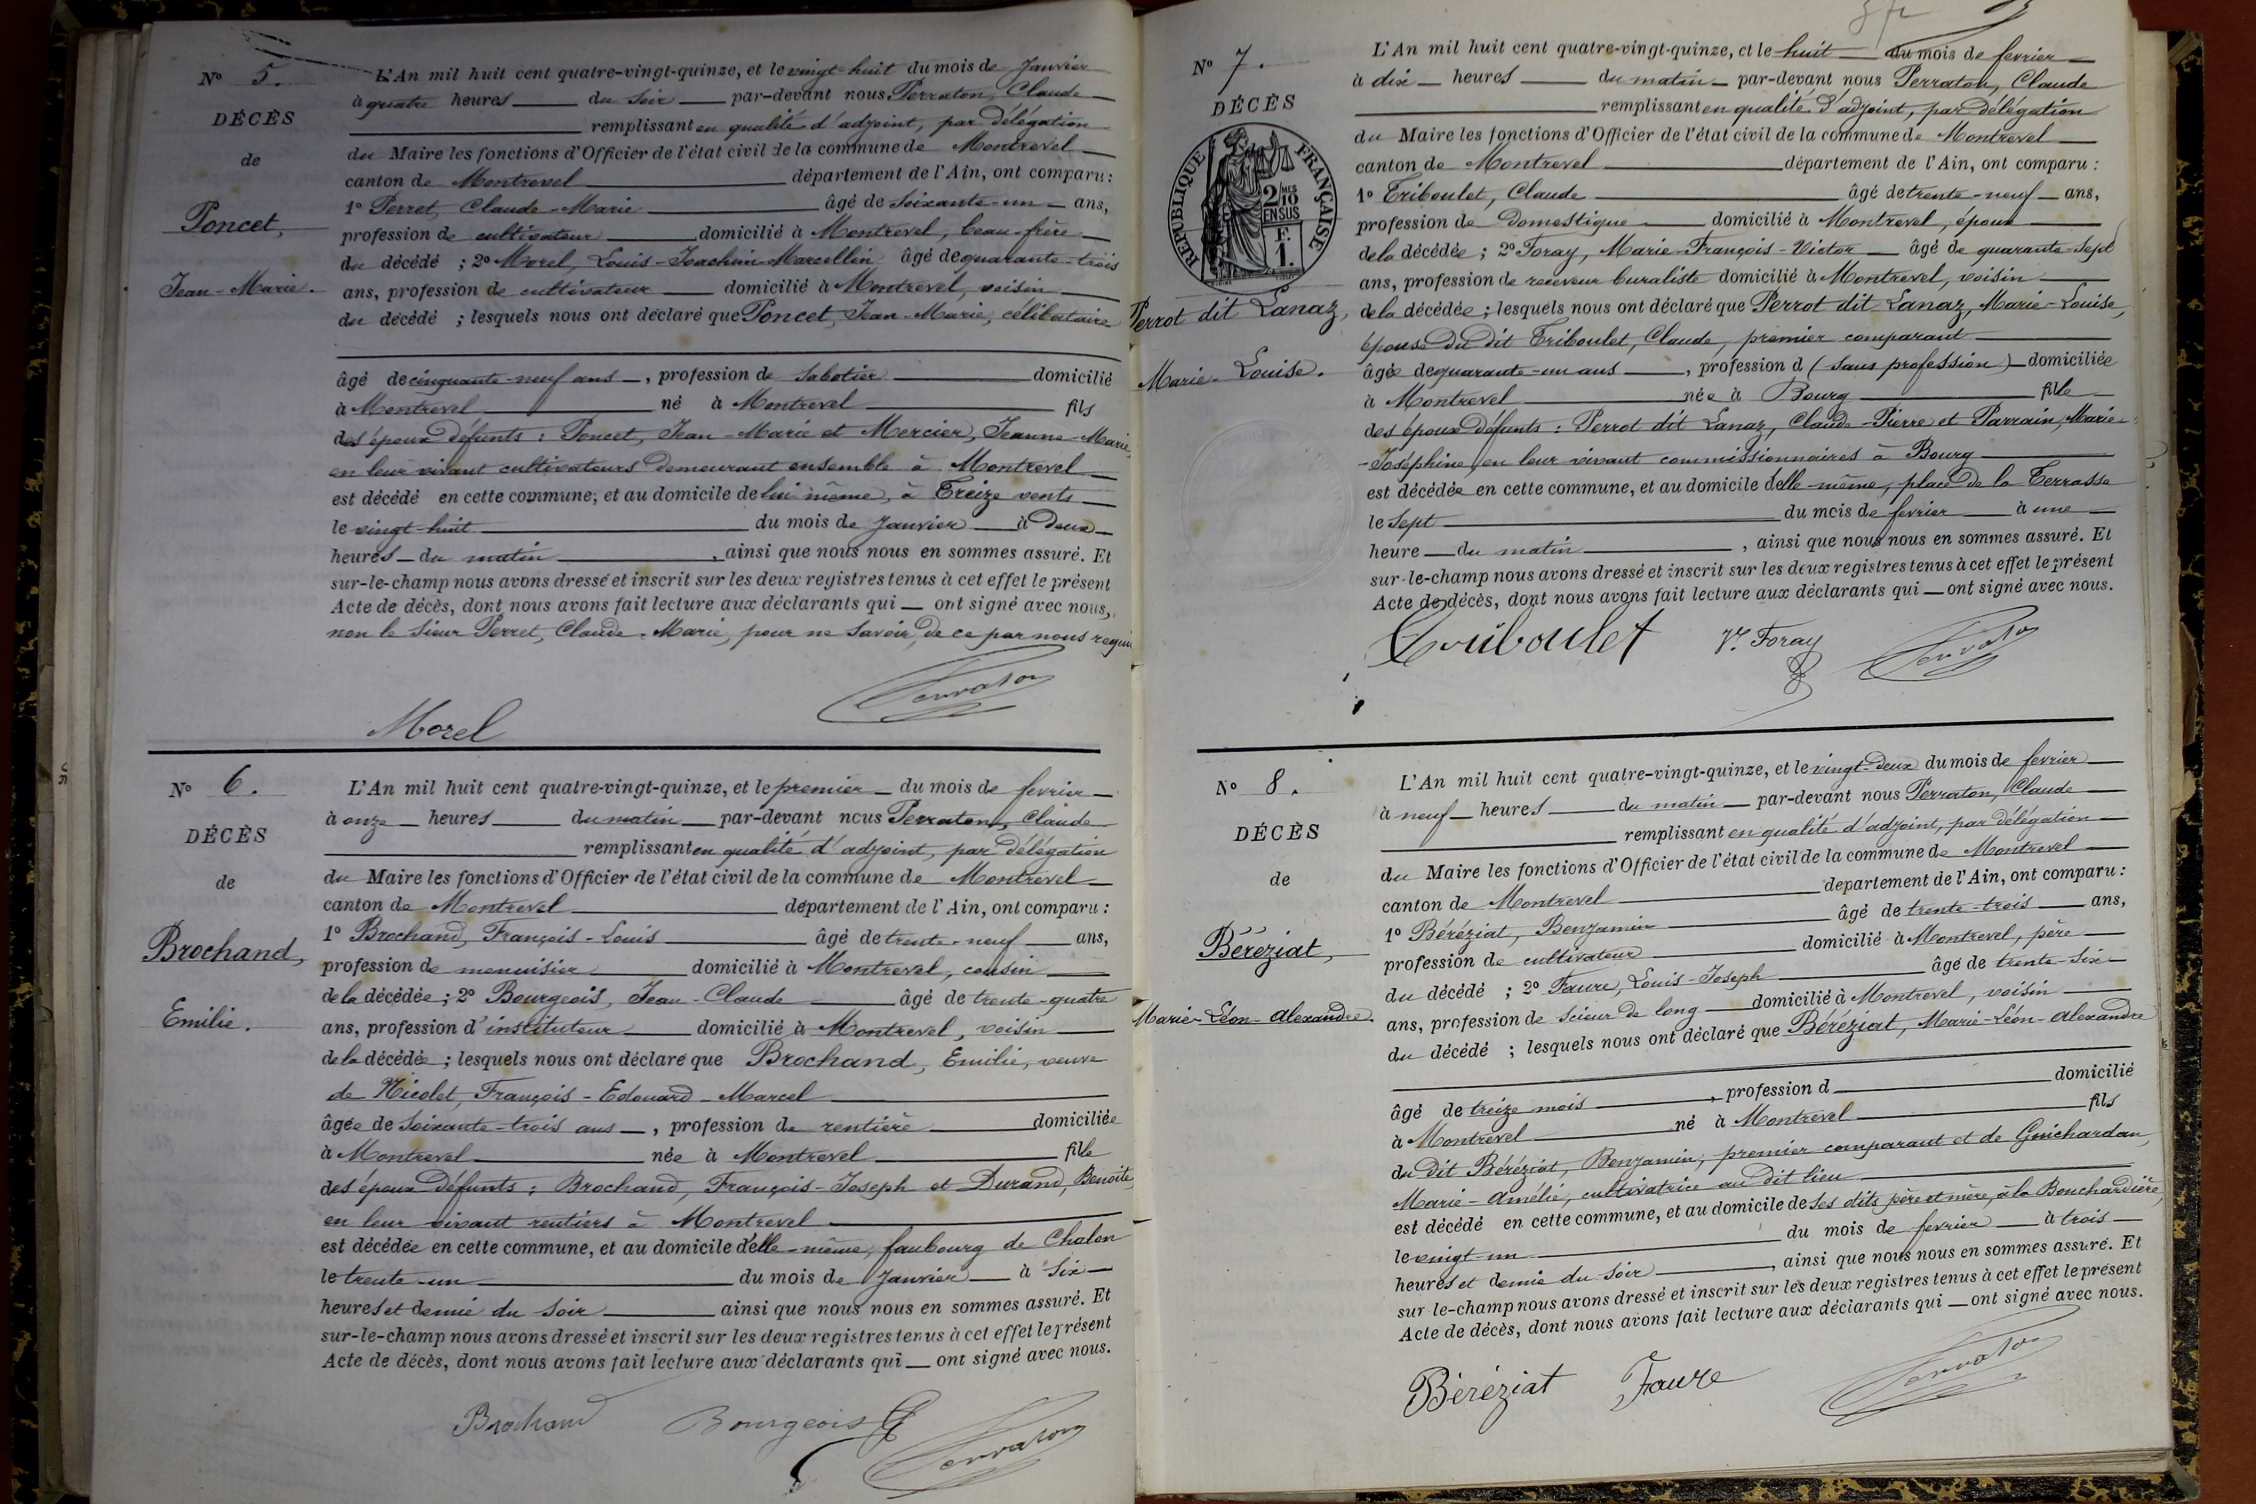 N° 5.
DÉCÈS
de
Poncet,
Jean-Marie.
L'An mil huit cent quatre-vingt-quinze, et le vingt-huit du mois de Janvier
à quatre heures du soir par-devant nous Perraton, Claude
remplissant en qualité d'adjoint, par délégation
du Maire les fonctions d'Officier de l'état civil de la commune de Montrevel
canton de Montrevel département de l'Ain, ont comparu:
1° Perret, Claude-Marie âgé de soixante-un ans,
profession de cultivateur domicilié à Montrevel, beau-frère
du décédé ; 2° Morel, Louis-Joachim-Marcellin âgé de quarante-trois
ans, profession de cultivateur domicilié à Montrevel, voisin
du décédé ; lesquels nous ont déclaré que Poncet, Jean-Marie, célibataire
âgé de cinquante-neuf ans, profession de sabotier domicilié
à Montrevel né à Montrevel fils
des époux défunts : Poncet, Jean-Marie et Mercier, Jeanne-Marie,
en leur vivant cultivateurs demeurant ensemble à Montrevel
est décédé en cette commune, et au domicile de lui même, à Treize vents
le vingt-huit du mois de Janvier à deux
heures du matin, ainsi que nous nous en sommes assuré. Et
sur-le-champ nous avons dressé et inscrit sur les deux registres tenus à cet effet le présent
Acte de décès, dont nous avons fait lecture aux déclarants qui ont signé avec nous,
non le sieur Perret, Claude-Marie, pour ne savoir, de ce par nous requis
Perraton
Morel
N° 6.
DÉCÈS
de
Brochand,
Emilie.
L'An mil huit cent quatre-vingt-quinze, et le premier du mois de fevrier
à onze heures du matin par-devant nous Perraton, Claude
remplissant en qualité d'adjoint, par délégation
du Maire les fonctions d'Officier de l'état civil de la commune de Montrevel
canton de Montrevel département de l'Ain, ont comparu :
1° Brochand, François-Louis âgé de trente-neuf ans,
profession de menuisier domicilié à Montrevel, cousin
de la décédée ; 2° Bourgeois, Jean-Claude âgé de trente-quatre
ans, profession d'instituteur domicilié à Montrevel, voisin
de la décédée ; lesquels nous ont déclaré que Brochand, Emilie, veuve
de Nicolet, François-Edouard-Marcel
âgée de soixante-trois ans, profession de rentière domiciliée
à Montrevel née à Montrevel fille
des époux défunts : Brochand, François-Joseph et Durand, Benoîte,
en leur vivant rentiers à Montrevel
est décédée en cette commune, et au domicile d'elle-même, faubourg de Chalon
le trente-un du mois de Janvier à six
heures et demie du soir ainsi que nous nous en sommes assuré. Et
sur-le-champ nous avons dressé et inscrit sur les deux registres tenus à cet effet le présent
Acte de décès, dont nous avons fait lecture aux déclarants qui ont signé avec nous.
Brochand Bourgeois Perraton
N° 7.
DÉCÈS
RÉPUBLIQUE FRANÇAISE
2/10 MES
EN SUS
F.
1.
Perrot dit Lanaz,
Marie-Louise.
L'An mil huit cent quatre-vingt-quinze, et le huit du mois de fevrier
à dix heures du matin par-devant nous Perraton, Claude
remplissant en qualité d'adjoint, par délégation
du Maire les fonctions d'Officier de l'état civil de la commune de Montrevel
canton de Montrevel département de l'Ain, ont comparu :
1° Triboulet, Claude âgé de trente-neuf ans,
profession de domestique domicilié à Montrevel, époux
de la décédée ; 2° Foray, Marie-François-Victor âgé de quarante-sept
ans, profession de receveur buraliste domicilié à Montrevel, voisin
de la décédée ; lesquels nous ont déclaré que Perrot dit Lanaz, Marie-Louise,
épouse du dit Triboulet, Claude, premier comparant
âgée de quarante-un ans, profession d (sans profession) domiciliée
à Montrevel née à Bourg fille
des époux défunts : Perrot dit Lanaz, Claude-Pierre et Parrain, Marie-
-Joséphine, en leur vivant commissionnaires à Bourg
est décédée en cette commune, et au domicile d'elle-même, place de la Terrasse
le sept du mois de fevrier à une
heure du matin, ainsi que nous nous en sommes assuré. Et
sur-le-champ nous avons dressé et inscrit sur les deux registres tenus à cet effet le présent
Acte de décès, dont nous avons fait lecture aux déclarants qui ont signé avec nous.
Triboulet Vr. Foray Perraton
N° 8.
DÉCÈS
de
Béréziat,
Marie-Léon-Alexandre.
L'An mil huit cent quatre-vingt-quinze, et le vingt-deux du mois de fevrier
à neuf heures du matin par-devant nous Perraton, Claude
remplissant en qualité d'adjoint, par délégation
du Maire les fonctions d'Officier de l'état civil de la commune de Montrevel
canton de Montrevel département de l'Ain, ont comparu :
1° Béréziat, Benjamin âgé de trente-trois ans,
profession de cultivateur domicilié à Montrevel, père
du décédé ; 2° Faure, Louis-Joseph âgé de trente-six
ans, profession de scieur de long domicilié à Montrevel, voisin
du décédé ; lesquels nous ont déclaré que Béréziat, Marie-Léon-Alexandre
âgé de treize mois, profession d domicilié
à Montrevel né à Montrevel fils
du dit Béréziat, Benjamin, premier comparant et de Guichardan,
Marie-Amélie, cultivatrice au dit lieu
est décédé en cette commune, et au domicile de ses dits père et mère, à la Bouchardière,
le vingt-un du mois de fevrier à trois
heures et demie du soir, ainsi que nous nous en sommes assuré. Et
sur le-champ nous avons dressé et inscrit sur les deux registres tenus à cet effet le présent
Acte de décès, dont nous avons fait lecture aux déclarants qui ont signé avec nous.
Béréziat Faure Perraton